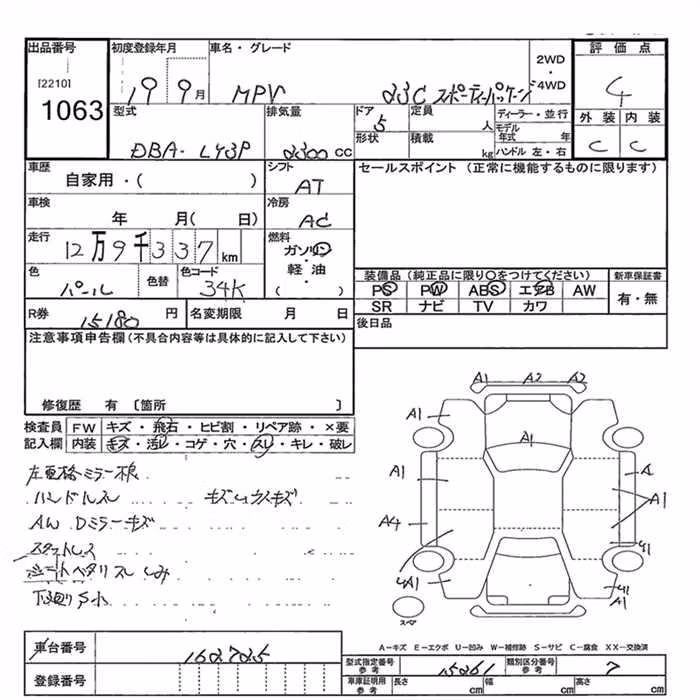 出品番号 初度登録年月 車名・グレード 評価点
[2210] 2WD
1063 19 9月 MPV 23C スポーティーパッケージ ・4WD 4
型式 排気量 ドア 定員 ディーラー・並行 外装 内装
DBA- LY3P 2300 CC 5 人 モデル年式 年 C C
形状 積載 kg ハンドル 左・右
車歴 シフト セールスポイント (正常に機能するものに限ります)
自家用・( ) AT
車検 冷房
年 月( 日) AC
走行 燃料
12万9千337km ガソリン
・
色 色替 色コード 軽・油 装備品 (純正品に限り○をつけてください) 新車保証書
パール 34K ( ) PS PW ABS エアB AW 有・無
SR ナビ TV カワ
R券 15180 円 名変期限 月 日 後日品
注意事項申告欄 (不具合内容等は具体的に記入して下さい)
修復歴 有 〔箇所 〕
検査員 FW キズ・飛石・ヒビ割・リペア跡・×要
記入欄 内装 キズ・汚レ・コゲ・穴・スレ・キレ・破レ
A1 A2 A2
A1 A1
A1
A1 A A1
A4
A1
A1
ハンドルスレ
AW Dミラーキズ
スペア
A−キズ E−エクボ U−凹み W−補修跡 S−サビ C−腐食 XX−交換済
車台番号 162725
型式指定番号 参考 15261 類別区分番号 参考 7
登録番号 車庫証明用 参考 長さ cm 幅 cm 高さ cm